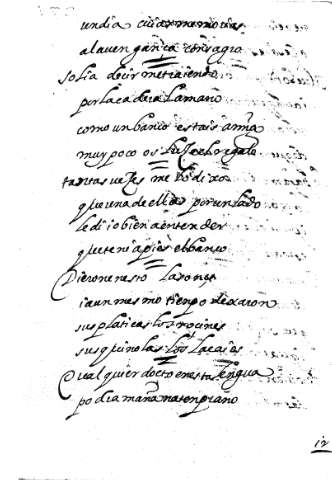 un dia
a la vengança consagro
solia decirme riiendo
por la cada la mano
como un banco estais amiga
muy poco os luze el regalo
tantas vezes me lo dixo
que una de ellas por un lado
le di io bien a entender
que tenia pies el banco
Dieron en esto las onze
i a un mesmo tiempo dexaron
sus platicas los rocines
sus quinolas los lacaios
Qualquier docto en esta lengua
podra mañana temprano
12